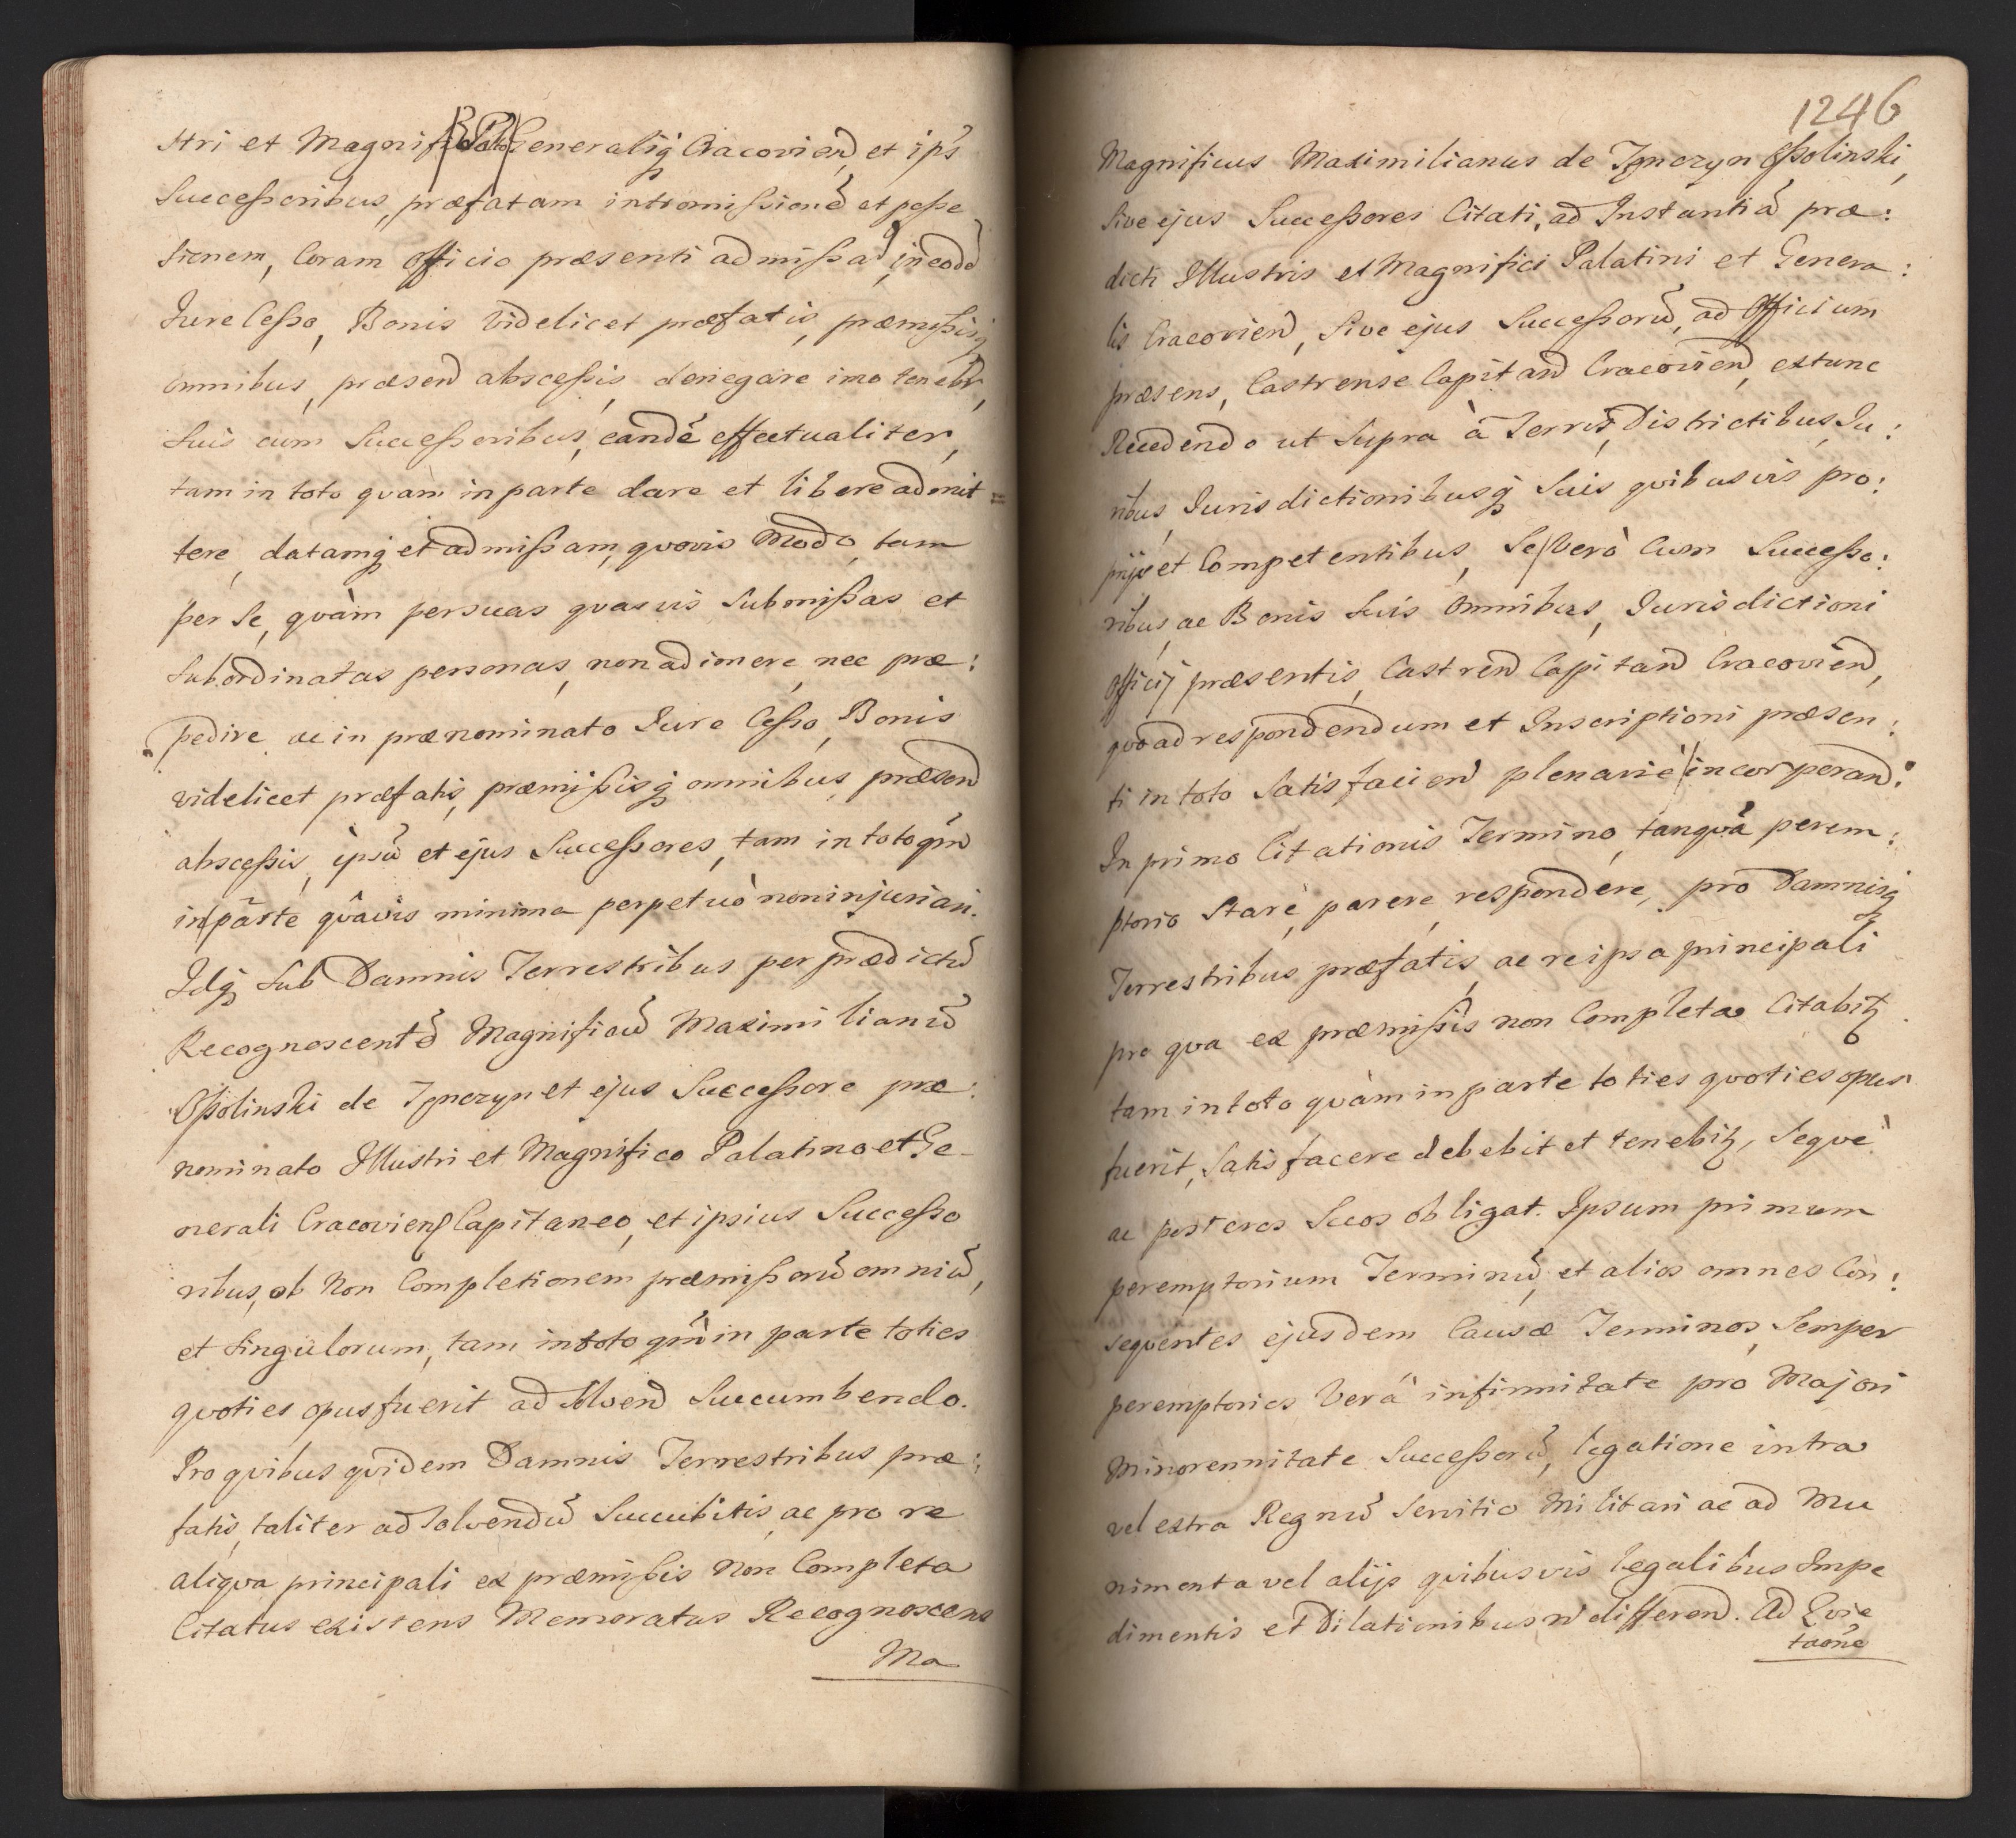 stri et Magnifico Pal: Generaliq́ Cracovien̄, et ips̄
Successoribus, præfatam intromissionē et posse
sionem, Coram Officio præsenti admissā, in eodē
Jure Cesso, Bonis videlicet præfatis, præmissisq́
omnibus, præsen̄ abscessis, denegare imo tenebr̄,
suis cum Successoribus, eandē effectualiter,
tam in toto qvàm in parte dare et libere admit =
tere, datamq́ et admissam, qvovis Modo, tam
per Se, qvàm per suas qvasvis Submissas et
Subordinatas personas, non adimere, nec præ:
pedire, ac in prænominato Jure Cesso, Bonis
videlicet præfatis, præmissisq́ omnibus, præsen̄
abscessis, ipsū et ejus Successores, tam in toto qm̄
in parte qvavis minima perpetuò non injuriari.
Idq́ sub Damnis Terrestribus per prædictū
Recognoscentē Magnificū Maximilianū
Ossolinski de Tęnczyn et ejus Successore præ:
nominato Illustri et Magnifico Palatino et Ge-
nerali Cracovien̄ Capitaneo, et ipsius Successo
ribus, ob Non Completionem præmissorū omniū,
et singulorum, tam in toto qm̄ in parte toties
qvoties opus fuerit ad Solven̄ Succumbendo.
Pro qvibus qvidem Damnis Terrestribus præ:
fatis, taliter ad Solvendū Succubitis, ac pro re
aliqva principali ex præmissis Non Completa
Citatus existens Memoratus Recognoscens
Ma
1246
Magnificus Maximilianus de Tęnczyn Ossolinski,
sive ejus Successores Citati, ad Instantiā præ:
dicti Illustris et Magnifici Palatini et Genera:
lis Cracovien̄, sive ejus Successorū, ad Officium
præsens, Castrense Capitan̄ Cracovien̄, extunc
Recedendo ut Supra à Terris, Districtibus, Ju:
ribus, Jurisdictionibusq́ Suis qvibusvis pro:
prijs et Competentibus, Se Verò Cum Successo:
ribus, ac Bonis Suis Omnibus, Jurisdictioni
Officij præsentis, Castren̄ Capitan̄ Cracovien̄,
qvo ad respondendum et Inscriptioni præsen:
ti in toto Satisfacien̄ plenarie incorporand:
In primo Citationis Termino, tanqvā perem:
ptorio Stare, parere, respondere, pro Damnisq́
Terrestribus præfatis, ac re ipsa principali
pro qva ex præmissis non Completa Citabit͛.
tam in toto qvàm in parte toties qvoties opus
fuerit, satisfacere debebit et tenebit͛, Seqve
ac posteros Suos obligat. Ipsum primum
peremptorium Terminū, et alios omnes Con:
seqventes ejusdem Causæ Terminos, Semper
peremptorios Verâ infirmitate pro Majori
Minorennitate Successorū, legatione intra
vel extra Regnū Servitio Militari ac ad Mu
nimenta vel alijs qvibusvis legalibus Impe
dimentis et Dilationibus n̄ differen̄. Ad Evic
taone